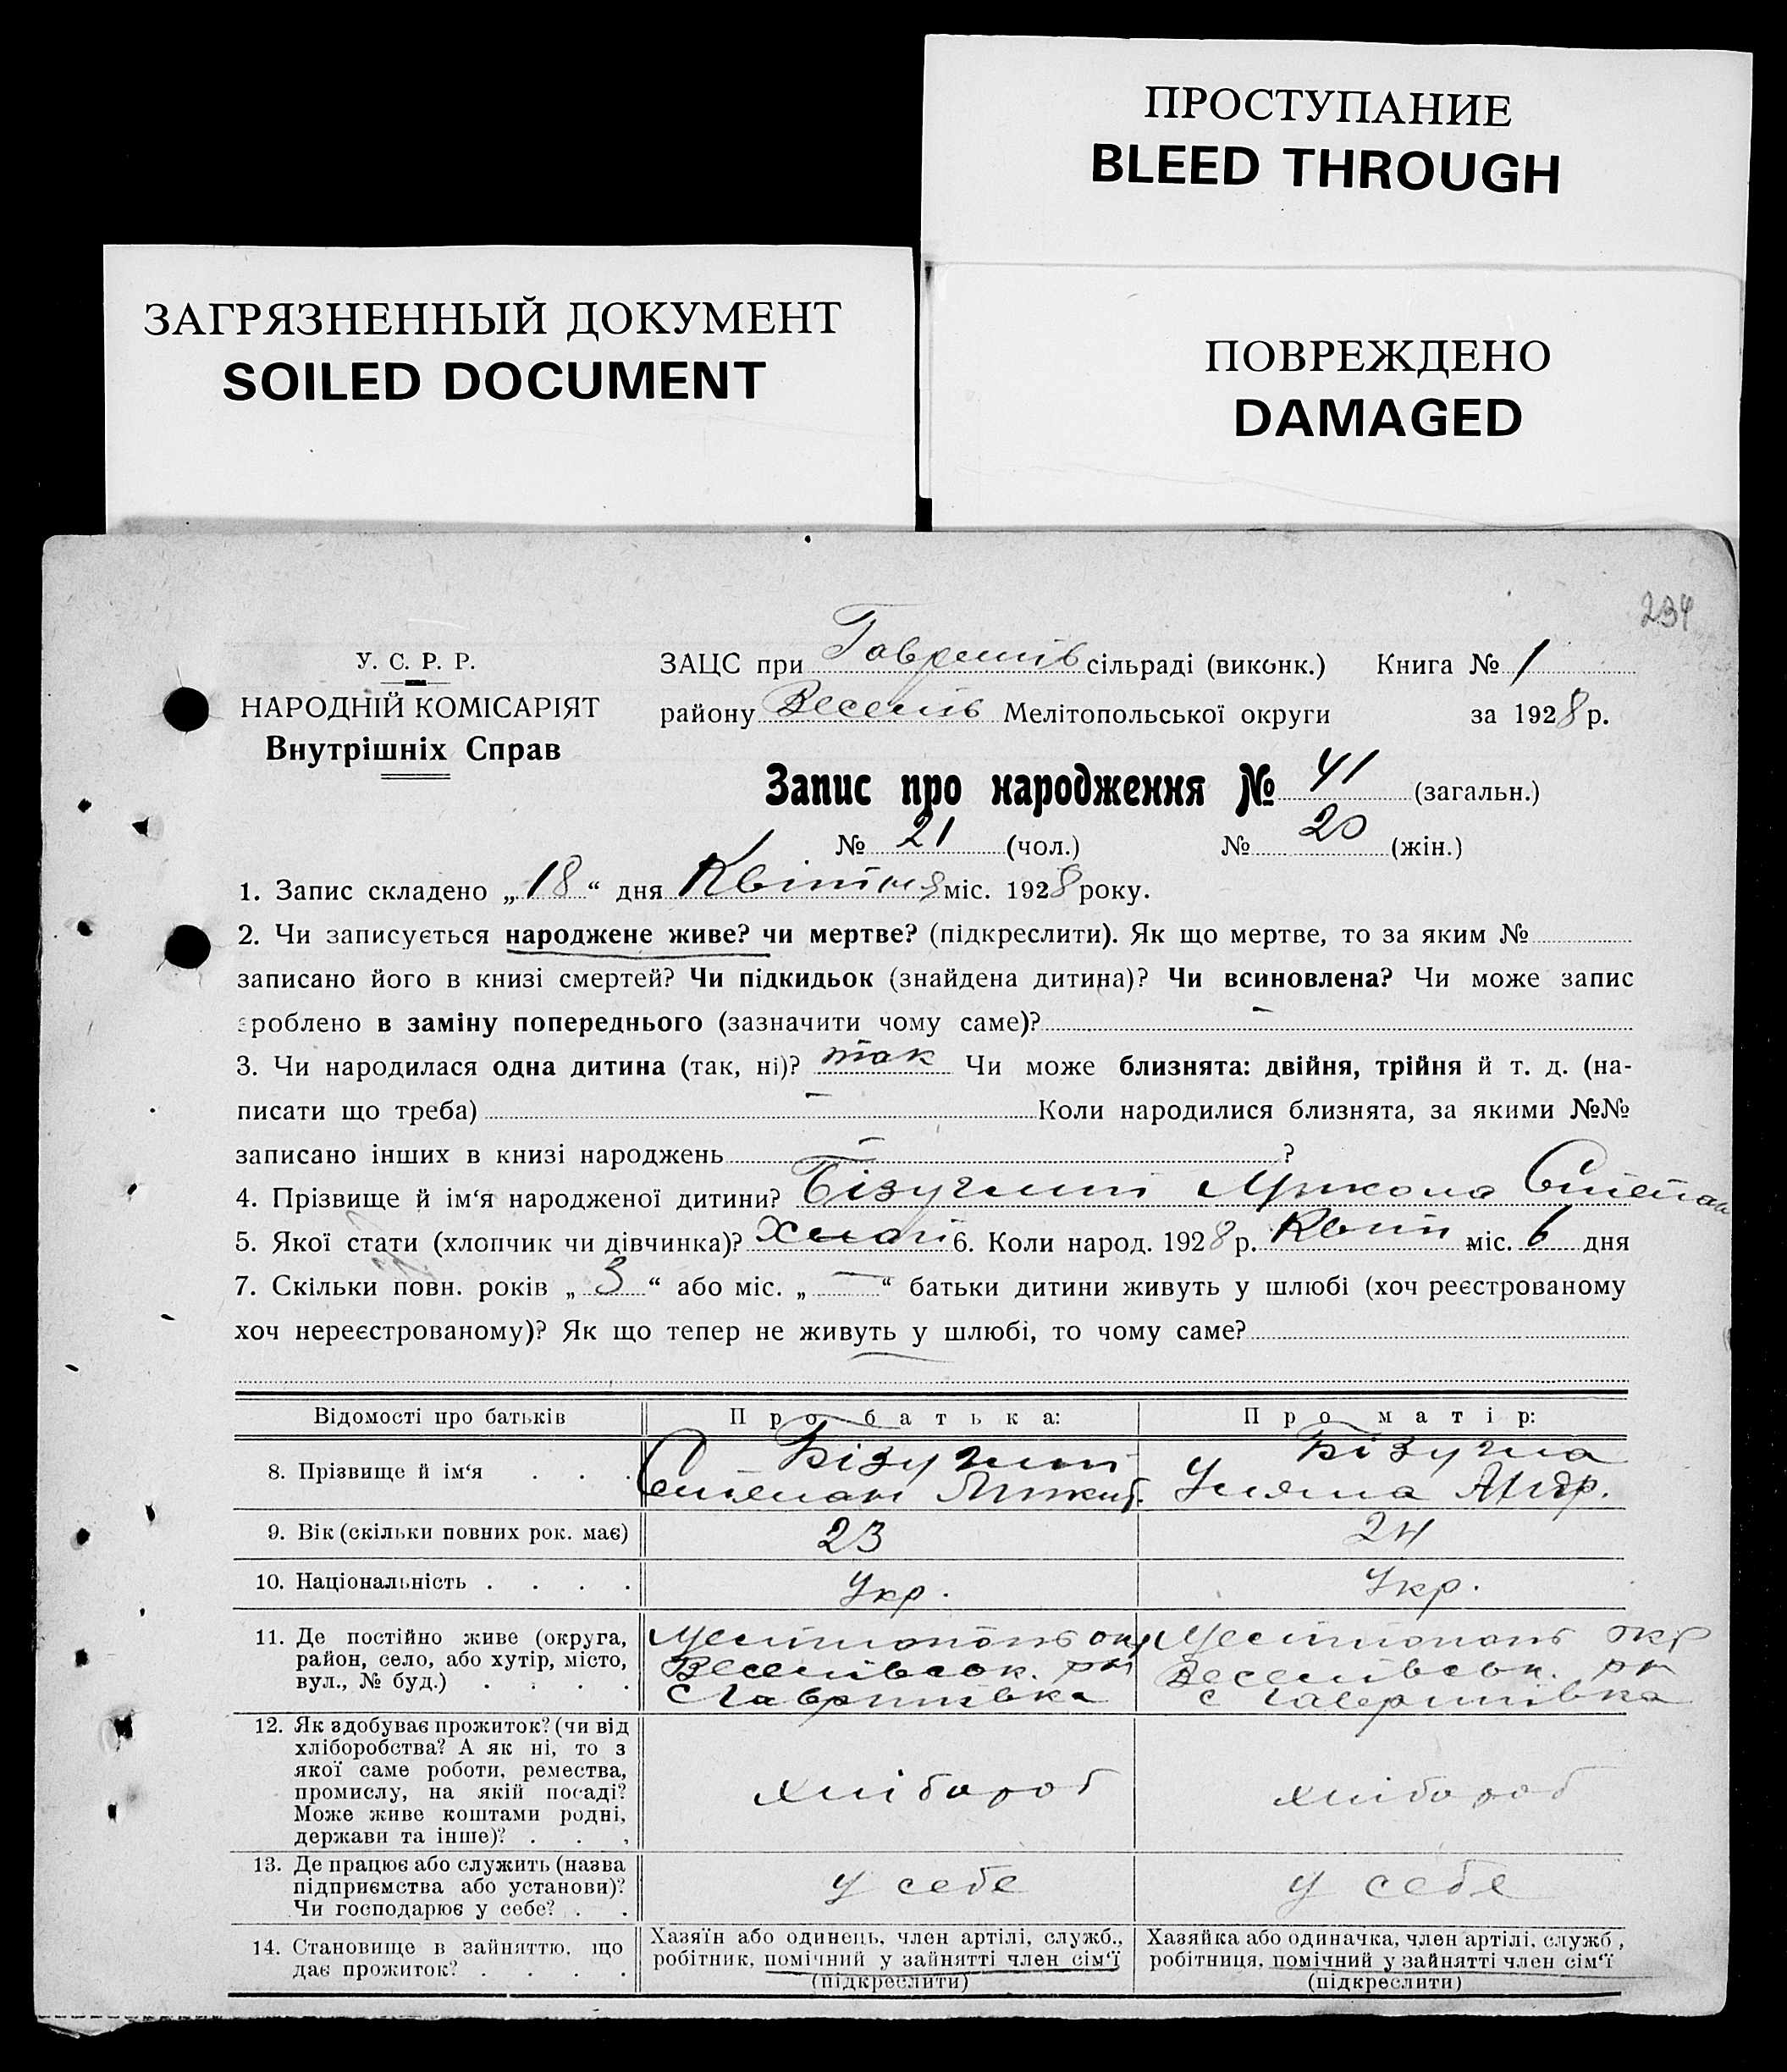 ПРОСТУПАНИЕ
BLEED THROUGH
ЗАГРЯЗНЕННЫЙ ДОКУМЕНТ
SOILED DOCUMENT
ПОВРЕЖДЕНО
DAMAGED
234
У. С. Р. Р.
НАРОДНІЙ КОМІСАРІЯТ
Внутрішніх Справ
ЗАЦС при Гаврилів сільраді (виконк.) Книга № 1
району Веселів Мелітопольської округи за 1928 р.
Запис про народження № 41 (загальн.)
№ 21 (чол.) № 20 (жін.)
1. Запис складено „18“ дня Квітня міс. 1928 року.
2. Чи записується народжене живе? чи мертве? (підкреслити). Як що мертве, то за яким №
записано його в книзі смертей? Чи підкидьок (знайдена дитина)? Чи всиновлена? Чи може запис
зроблено в заміну попереднього (зазначити чому саме)? —
3. Чи народилася одна дитина (так, ні)? так Чи може близнята: двійня, трійня й т. д. (на-
писати що треба) — Коли народилися близнята, за якими №№
записано інших в книзі народжень — ?
4. Прізвище й ім‘я народженої дитини? Бізуглий Микола Степан
5. Якої стати (хлопчик чи дівчинка)? 6. Коли народ. 1928 р. Квіт міс. 6 дня
7. Скільки повн. років „3“ або міс. „—“ батьки дитини живуть у шлюбі (хоч реєстрованому
хоч нереєстрованому)? Як що тепер не живуть у шлюбі, то чому саме?
Відомості про батьків Про батька: Про матір:
8. Прізвище й ім‘я . . . Бізуглий Степан Бізугла Уляна Андр.
9. Вік (скільки повних рок. має) 23 24
10. Національність . . . . Укр. Укр.
11. Де постійно живе (округа, Мелітополь окр Мелітополь окр
район, село, або хутір, місто, Веселівськ. рн Веселівськ. рн
вул., № буд.) . . . . с Гаврилівка с Гаврилівка
12. Як здобуває прожиток? (чи від
хліборобства? А як ні, то з
якої саме роботи, ремества,
промислу, на якій посаді? хлібороб хлібороб
Може живе коштами родні,
держави та інше)? . . .
13. Де працює або служить (назва
підприємства або установи)? у себе у себе
Чи господарює у себе? . .
14. Становище в зайняттю, що
дає прожиток? . . . .
Хазяїн або одинець, член артілі, служб.,
робітник, помічний у зайнятті член сім‘ї
(підкреслити)
Хазяйка або одиначка, член артілі, служб.,
робітниця, помічний у зайнятті член сім‘ї
(підкреслити)